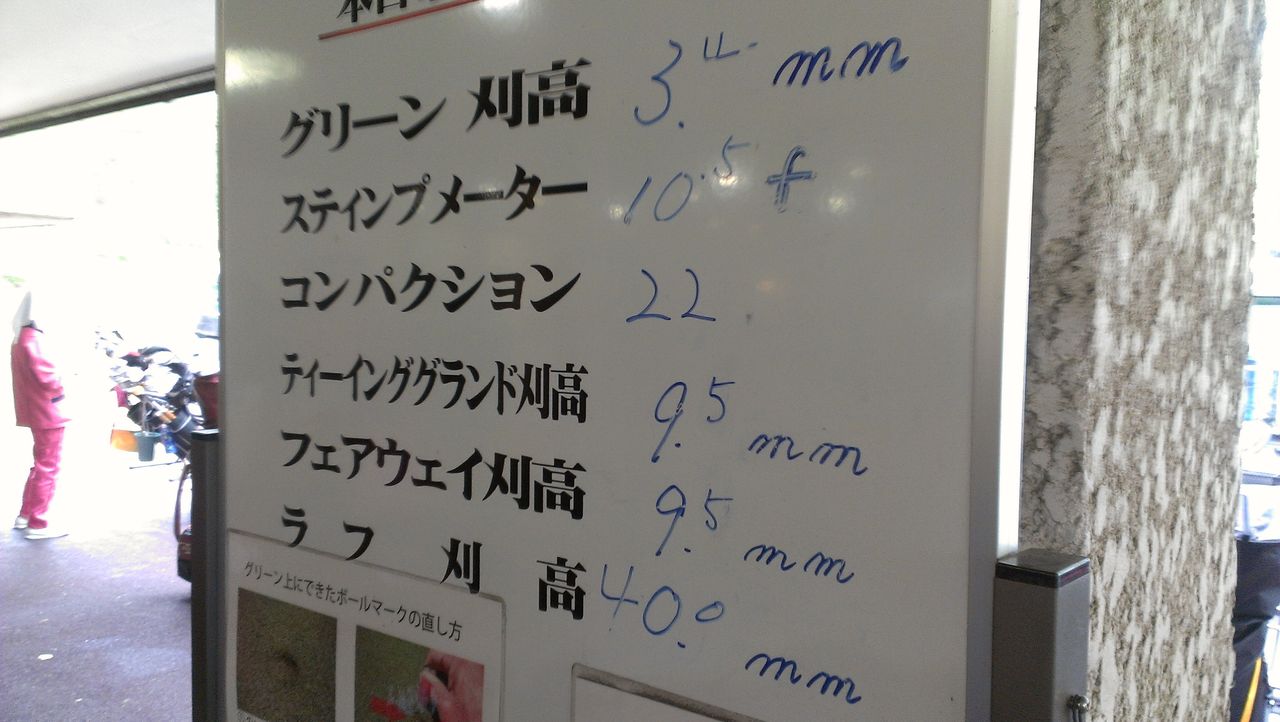 グリーン 刈高 3.4 mm
スティンプメーター 10.5 f
コンパクション 22
ティーインググランド刈高 9.5 mm
フェアウェイ刈高 9.5 mm
ラフ 刈 高 40.0 mm
グリーン上にできたボールマークの直し方